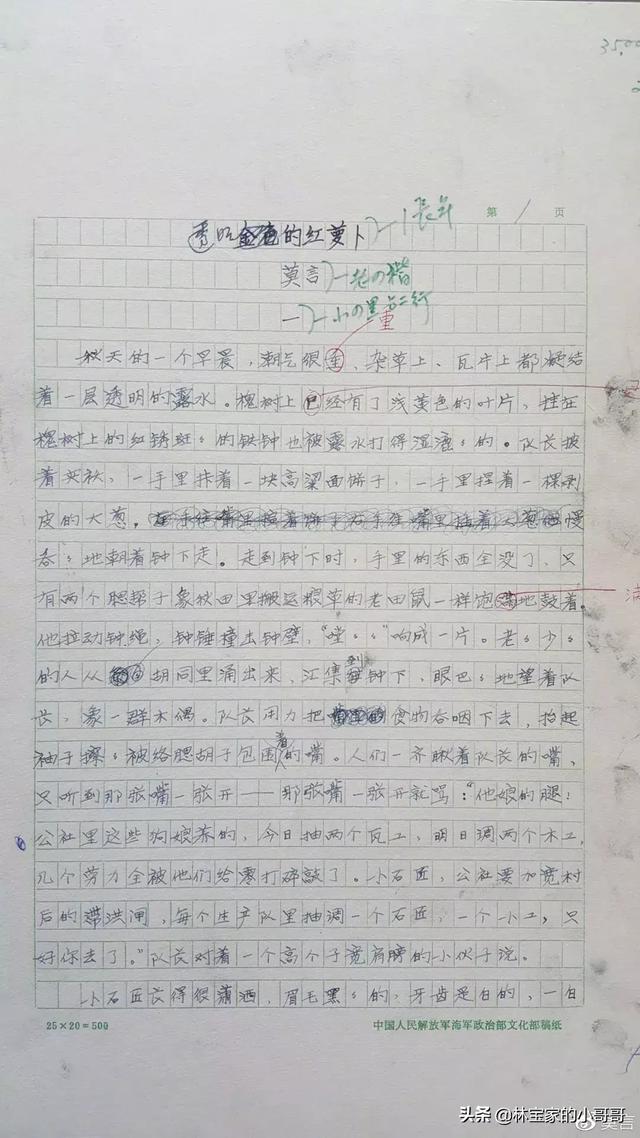 35.00
第 1 页
透明的红萝卜 长年
莫言 老四楷
一 小四黑占二行
重
秋天的一个早晨,潮气很重,杂草上、瓦片上都凝结
着一层透明的露水。槐树上已经有了浅黄色的叶片,挂在
槐树上的红锈斑〻的铁钟也被露水打得湿漉〻的。队长披
着夹袄,一手里拤着一块高粱面饼子,一手里捏着一棵剥
皮的大葱,慢
吞〻地朝着钟下走。走到钟下时,手里的东西全没了,只
有两个腮帮子象秋田里搬运粮草的老田鼠一样饱满地鼓着。
他拉动钟绳,钟锤撞击钟壁,"嘡〻〻"响成一片。老〻少〻
的人从胡同里涌出来,汇集到钟下,眼巴〻地望着队
长,象一群木偶。队长用力把食物吞咽下去,抬起
袖子擦〻被络腮胡子包围着的嘴。人们一齐瞅着队长的嘴,
只听到那张嘴一张开——那张嘴一张开就骂:"他娘的腿!
公社里这些狗娘养的,今日抽两个瓦工,明日调两个木工,
几个劳力全被他们给零打碎敲了。小石匠,公社要加宽村
后的滞洪闸,每个生产队里抽调一个石匠,一个小工,只
好你去了。"队长对着一个高个子宽肩膀的小伙子说。
小石匠长得很潇洒,眉毛黑〻的,牙齿是白的,一白
25×20=500
中国人民解放军海军政治部文化部稿纸
头条 @林宝家的小哥哥
莫言